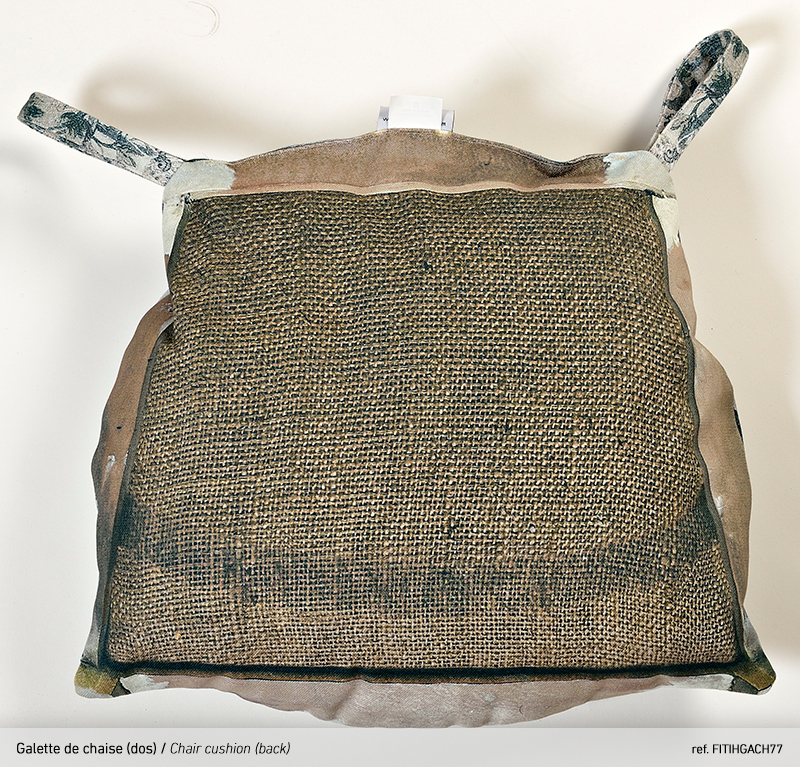 Galette de chaise (dos) / Chair cushion (back)
ref. FITIHGACH77